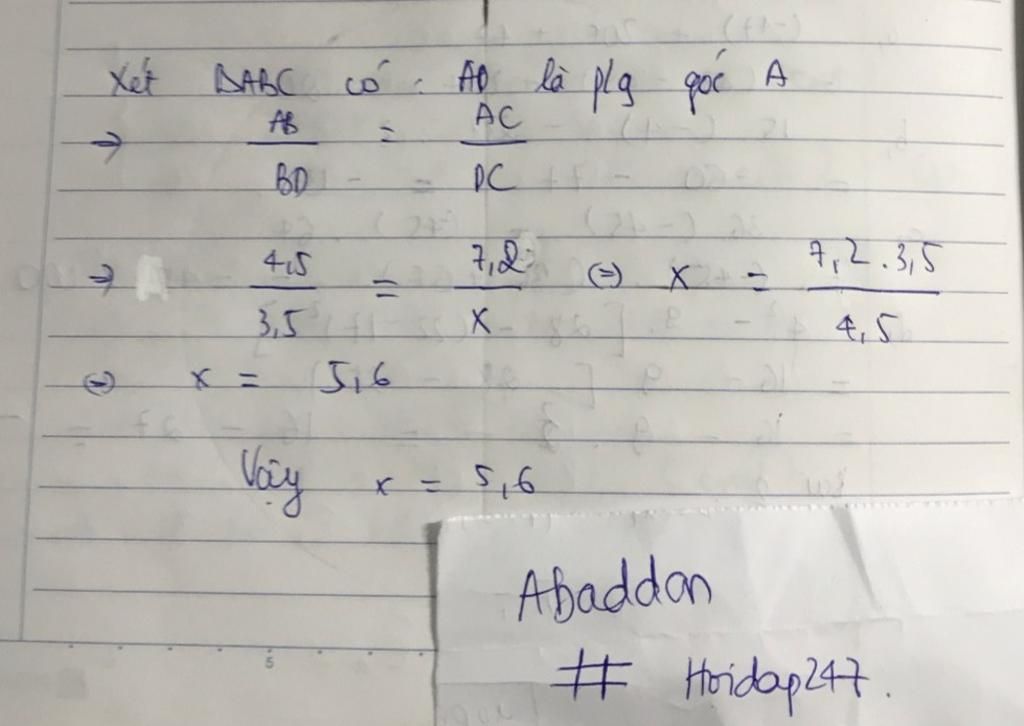 Xét ΔABC có : AD là p/g góc A
→ AB/BD = AC/DC
→ 4,5/3,5 = 7,2/x (=) x = 7,2.3,5/4,5
(=) x = 5,6
Vậy x = 5,6
Abaddon
# Hoidap247.
5